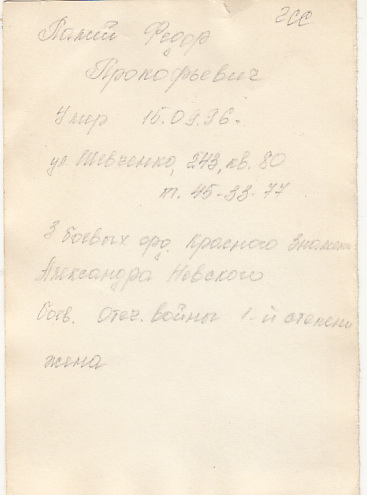 ГСС
Палий Федор
Прокофьевич
Умер 15.09.96.
ул. Шевченко, 243, кв. 80
т. 45-33-77
3 боевых орд. Красного Знамени
Александра Невского
боев. Отеч. войны 1-й степени
жена